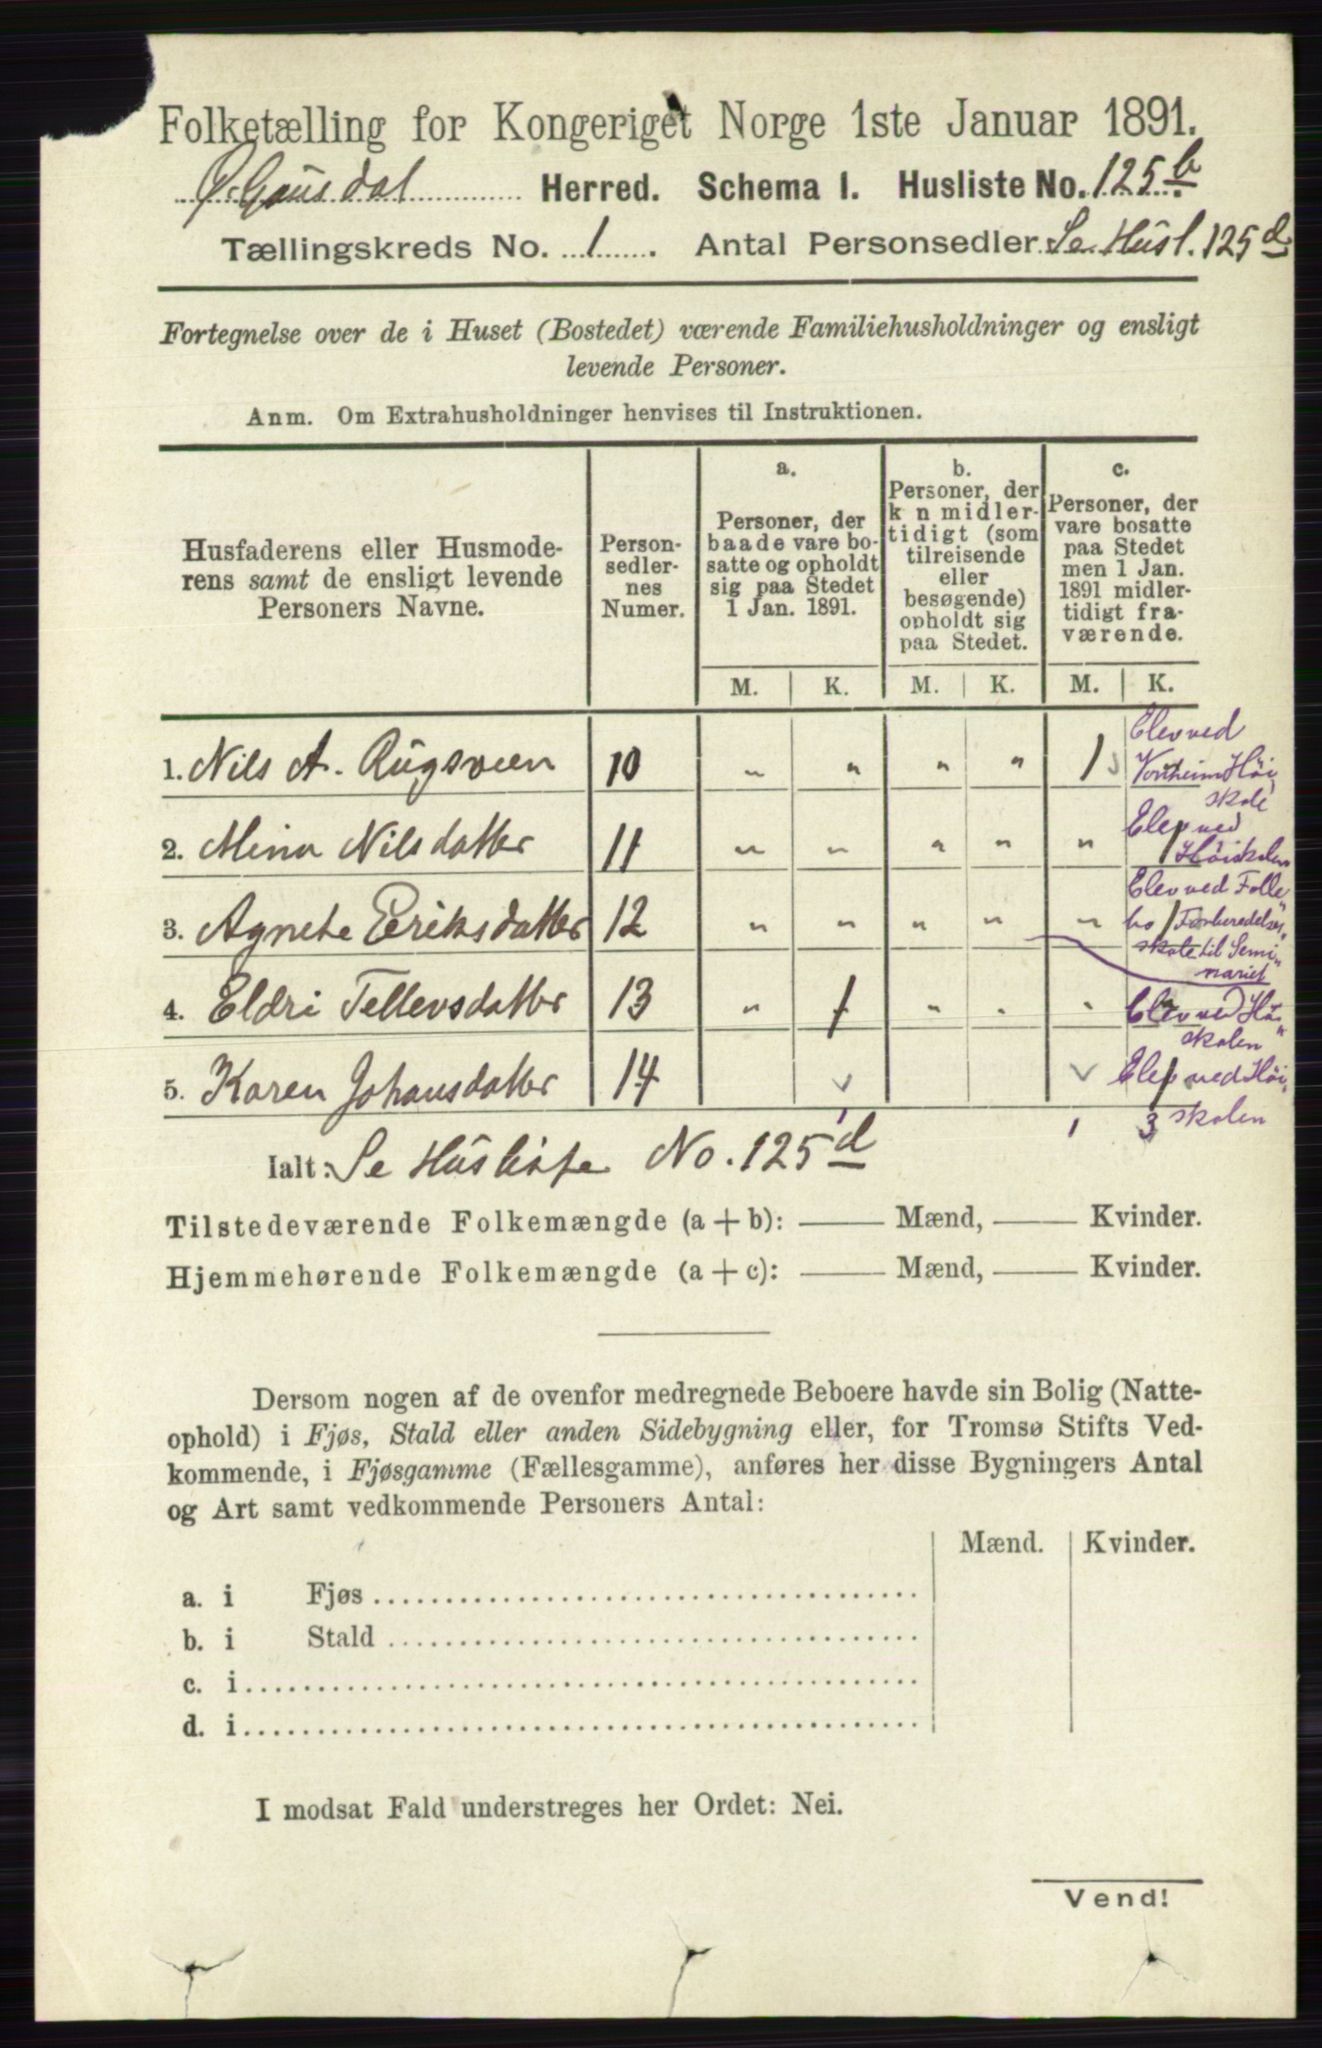 Folketælling for Kongeriget Norge 1ste Januar 1891.
Ø. Gausdal Herred. Schema 1. Husliste No. 125 b
Tællingskreds No. 1. Antal Personsedler Se Husl. 125 d
Fortegnelse over de i Huset (Bostedet) værende Familiehusholdninger og ensligt
levende Personer.
Anm. Om Extrahusholdninger henvises til Instruktionen.
Husfaderens eller Husmode-
rens samt de ensligt levende
Personers Navne.
Person-
sedler-
nes
Numer.
a.
Personer, der
baade vare bo-
satte og opholdt
sig paa Stedet
1 Jan. 1891.
b.
Personer, der
k n midler-
tidigt (som
tilreisende
eller
besøgende)
opholdt sig
paa Stedet.
c.
Personer, der
vare bosatte
paa Stedet
men 1 Jan.
1891 midler-
tidigt fra-
værende.
M. K. M. K. M. K.
1. Nils A. Rugsveen 10 " " " " 1 Elev ved
Høi
skole
2. Mina Nilsdatter 11 " " " " " 1 Elev ved
Høiskolen
3. Agnete Eriksdatter 12 " " " " " 1 Elev ved Folle
bo Forberedelses
skole til Semi
nariet
4. Eldri Tellevsdatter 13 " 1 " " " " Elev ved Høi
skolen
5. Karen Johansdatter 14 1 Elev ved Høi
skolen
1 1 3
Ialt: Se Husliste No. 125 d
Tilstedeværende Folkemængde (a + b): —— Mænd, —— Kvinder.
Hjemmehørende Folkemængde (a + c): —— Mænd, —— Kvinder.
Dersom nogen af de ovenfor medregnede Beboere havde sin Bolig (Natte-
ophold) i Fjøs, Stald eller anden Sidebygning eller, for Tromsø Stifts Ved-
kommende, i Fjøsgamme (Fællesgamme), anføres her disse Bygningers Antal
og Art samt vedkommende Personers Antal:
Mænd. Kvinder.
a. i Fjøs
b. i Stald
c. i
d. i
I modsat Fald understreges her Ordet: Nei.
Vend!